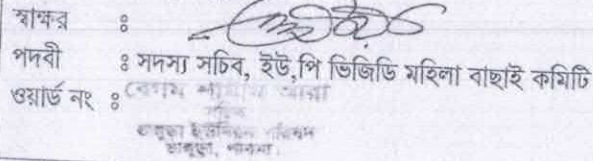 স্বাক্ষর ঃ
পদবী ঃ সদস্য সচিব, ইউ,পি ভিজিডি মহিলা বাছাই কমিটি
ওয়ার্ড নং ঃ
বেগম শামীম আরা
সচিব
ইউনিয়ন পরিষদ